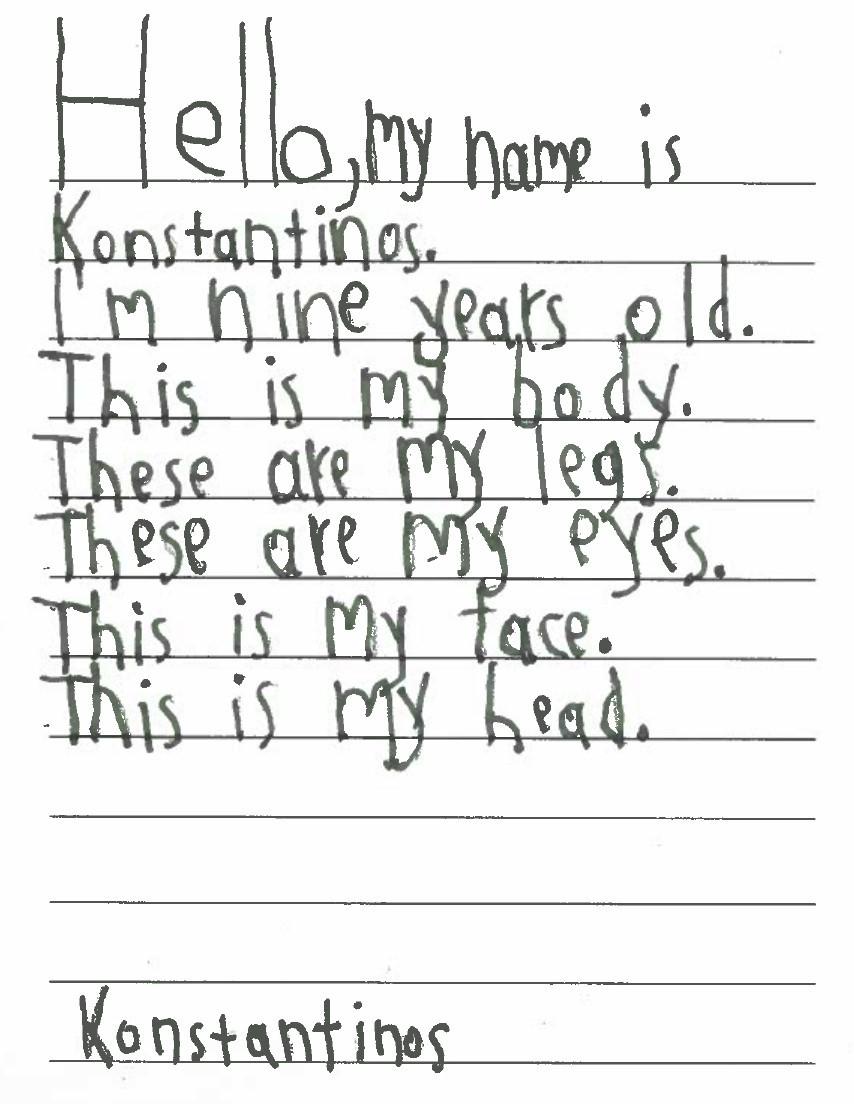 Hello, my name is
Konstantinos.
I'm nine years old.
This is my body.
These are my legs.
These are my eyes.
This is my face.
This is my head.
Konstantinos